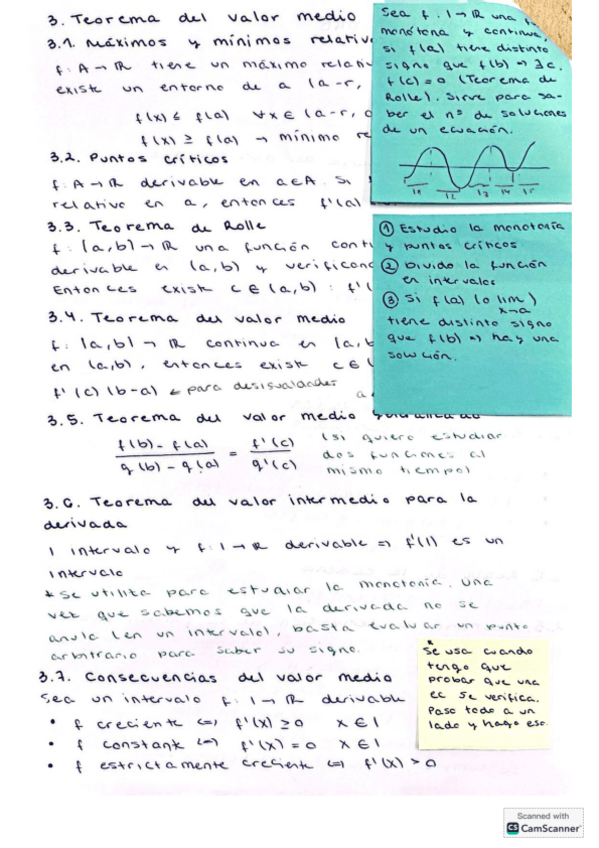 3. Teorema del valor medio
3.1. Máximos y mínimos relativ
f: A → ℝ tiene un máximo relati
existe un entorno de a (a-r,
f(x) ≤ f(a) ∀x ∈ (a-r,
f(x) ≥ f(a) → mínimo re
3.2. Puntos críticos
f: A → ℝ derivable en a∈A. Si
relativo en a, entonces f'(a)
3.3. Teorema de Rolle
f: [a,b] → ℝ una función conti
derivable en (a,b) y verifican
Entonces existe c ∈ (a,b) : f'(
3.4. Teorema del valor medio
f: [a,b] → ℝ continua en [a,b
en (a,b), entonces existe c ∈ (
f'(c) (b-a) ← para desigualdades
3.5. Teorema del valor medio generalizado
f(b) - f(a) / g(b) - g(a) = f'(c) / g'(c)
(si quiero estudiar
dos funciones al
mismo tiempo)
3.6. Teorema del valor intermedio para la
derivada
I intervalo y f: I → ℝ derivable ⇒ f'(I) es un
intervalo
* Se utiliza para estudiar la monotonía. Una
vez que sabemos que la derivada no se
anula (en un intervalo), basta evaluar un punto
arbitrario para saber su signo.
3.7. Consecuencias del valor medio
Sea un intervalo f: I → ℝ derivable
• f creciente ⇔ f'(x) ≥ 0 x ∈ I
• f constante ⇔ f'(x) = 0 x ∈ I
• f estrictamente creciente ⇔ f'(x) > 0
Sea f: I → ℝ una f
monótona y continua,
si f(a) tiene distinto
signo que f(b) ⇒ ∃c
f(c) = 0 (Teorema de
Rolle). Sirve para sa-
ber el nº de soluciones
de un ecuación.
I1 I2 I3 I4 I5
① Estudio la monotonía
y puntos críticos
② Divido la función
en intervalos
③ Si f(a) (o lim x→a)
tiene distinto signo
que f(b) ⇒ hay una
solución.
* Se usa cuando
tengo que
probar que una
ec se verifica.
Paso todo a un
lado y hago eso.
Scanned with
CS CamScanner